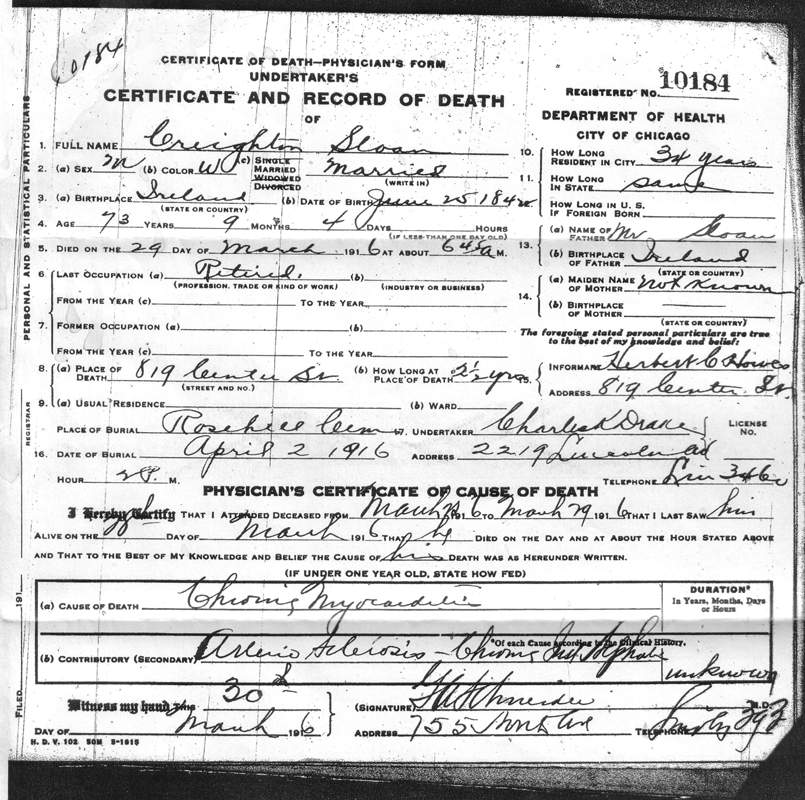 10184
CERTIFICATE OF DEATH—PHYSICIAN'S FORM
UNDERTAKER'S
CERTIFICATE AND RECORD OF DEATH
OF
REGISTERED NO. 10184
DEPARTMENT OF HEALTH
CITY OF CHICAGO
PERSONAL AND STATISTICAL PARTICULARS
1. FULL NAME Creighton Sloan
2. (a) SEX M (b) COLOR W (c) SINGLE MARRIED WIDOWED DIVORCED Married
(WRITE IN)
3. (a) BIRTHPLACE Ireland (b) DATE OF BIRTH June 25 1842
(STATE OR COUNTRY)
4. AGE 73 YEARS 9 MONTHS 4 DAYS HOURS
(IF LESS THAN ONE DAY OLD)
5. DIED ON THE 29 DAY OF March 1916 AT ABOUT 6 45 a M.
6. LAST OCCUPATION (a) Retired. (b)
(PROFESSION, TRADE OR KIND OF WORK) (INDUSTRY OR BUSINESS)
FROM THE YEAR (c) TO THE YEAR
7. FORMER OCCUPATION (a) (b)
FROM THE YEAR (c) TO THE YEAR
8. (a) PLACE OF DEATH 819 Center St. (b) HOW LONG AT PLACE OF DEATH 2½ yrs
(STREET AND NO.)
9. (a) USUAL RESIDENCE (b) WARD
10. HOW LONG RESIDENT IN CITY 34 years
11. HOW LONG IN STATE same
HOW LONG IN U. S. IF FOREIGN BORN
13. (a) NAME OF FATHER Mr Sloan
(b) BIRTHPLACE OF FATHER Ireland
(STATE OR COUNTRY)
14. (a) MAIDEN NAME OF MOTHER Not Known
(b) BIRTHPLACE OF MOTHER
(STATE OR COUNTRY)
The foregoing stated personal particulars are true
to the best of my knowledge and belief:
15. INFORMANT Herbert C Howes
ADDRESS 819 Center St.
REGISTRAR
16. PLACE OF BURIAL Rosehill Cem
DATE OF BURIAL April 2 1916
HOUR 2 P. M.
17. UNDERTAKER Charles K Drake
ADDRESS 2219 Lincoln
LICENSE NO.
TELEPHONE Lin 346
PHYSICIAN'S CERTIFICATE OF CAUSE OF DEATH
I Hereby Certify THAT I ATTENDED DECEASED FROM March 1916 TO March 29 1916 THAT I LAST SAW him
ALIVE ON THE DAY OF March 1916 THAT he DIED ON THE DAY AND AT ABOUT THE HOUR STATED ABOVE
AND THAT TO THE BEST OF MY KNOWLEDGE AND BELIEF THE CAUSE OF his DEATH WAS AS HEREUNDER WRITTEN.
(IF UNDER ONE YEAR OLD, STATE HOW FED)
(a) CAUSE OF DEATH Chronic Myocarditis
DURATION*
In Years, Months, Days or Hours
*Of each Cause according to the Clinical History.
(b) CONTRIBUTORY (SECONDARY) Arterio Sclerosis - Chronic Int Nephritis
unknown
191
FILED
Witness my hand THIS 30
DAY OF March 1916
(SIGNATURE) Schneider M.D.
ADDRESS 755 North Ave TELEPHONE
H. D. V. 102 50M 5-1915